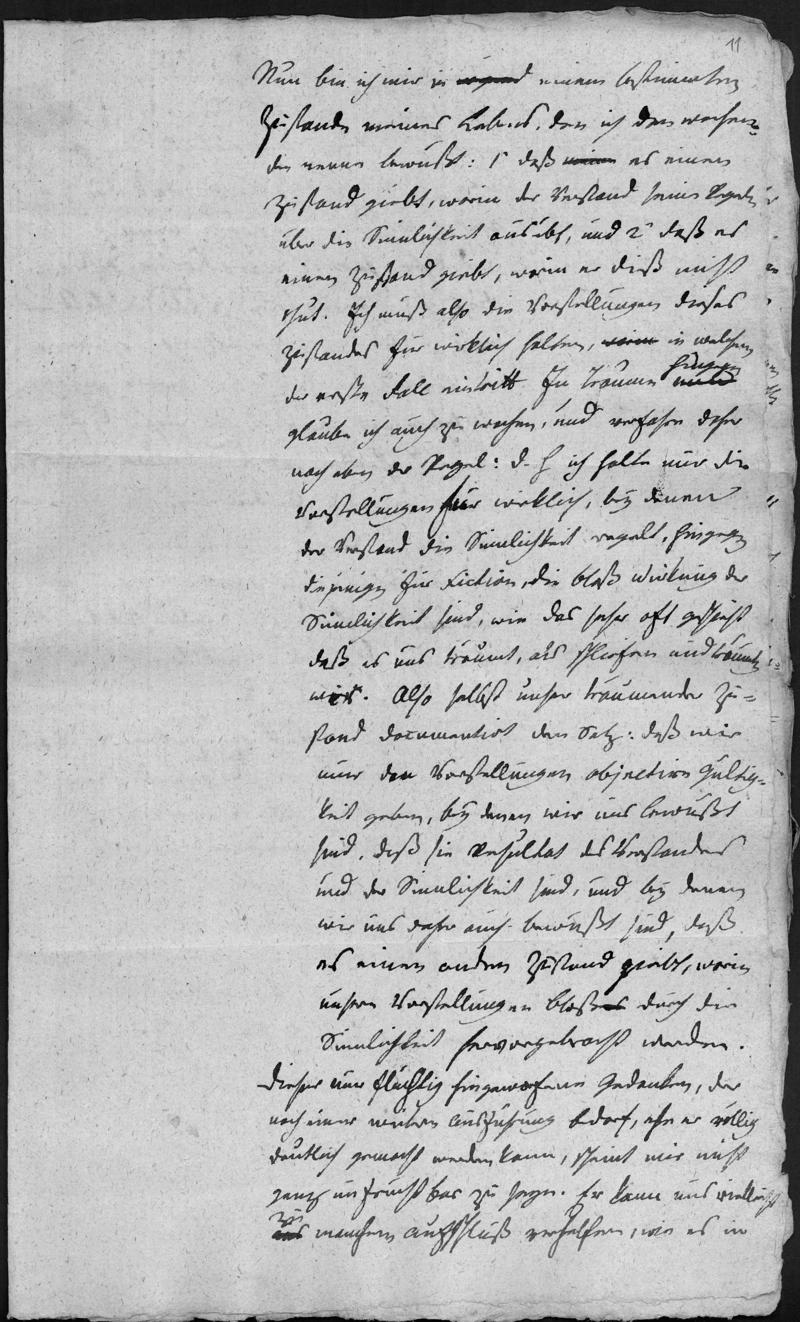 11
Nun bin ich mir in irgend einem bestimmten
Zustande meines Lebens, den ich den wachen-
den nenne bewußt: 1° daß es einen
Zustand giebt, worin der Verstand seine Regeln
über die Sinnlichkeit ausübt, und 2° daß es
einen Zustand giebt, worin er dieß nicht
thut. Ich muß also die Vorstellungen dieses
Zustandes für wirklich halten, worin in welchem
der erste Fall eintritt. Im Traume hingegen
glaube ich auch zu wachen, und verfahre daher
nach eben der Regel: d. h. ich halte nur die
Vorstellungen für wirklich, bey denen
der Verstand die Sinnlichkeit regelt, hingegen
diejenigen für Fiction, die bloß Wirkung der
Sinnlichkeit sind, wie das sehr oft geschieht
daß es uns träumt, als schliefen und träumten
wir. Also selbst unser träumender Zu-
stand documentirt den Satz: daß wir
nur den Vorstellungen objective Gültig-
keit geben, bey denen wir uns bewußt
sind, daß sie Resultat des Verstandes
und der Sinnlichkeit sind, und bey denen
wir uns daher auch bewußt sind, daß
es einen andern Zustand giebt, worin
unsere Vorstellungen bloß durch die
Sinnlichkeit hervorgebracht werden.
Dieser nur flüchtig hingeworfene Gedanken, der
noch einer weitern Ausführung bedarf, ehe er völlig
deutlich gemacht werden kann, scheint mir nicht
ganz unfruchtbar zu seyn. Er kann uns vielleicht
zu manchem Aufschluß verhelfen, wie es in